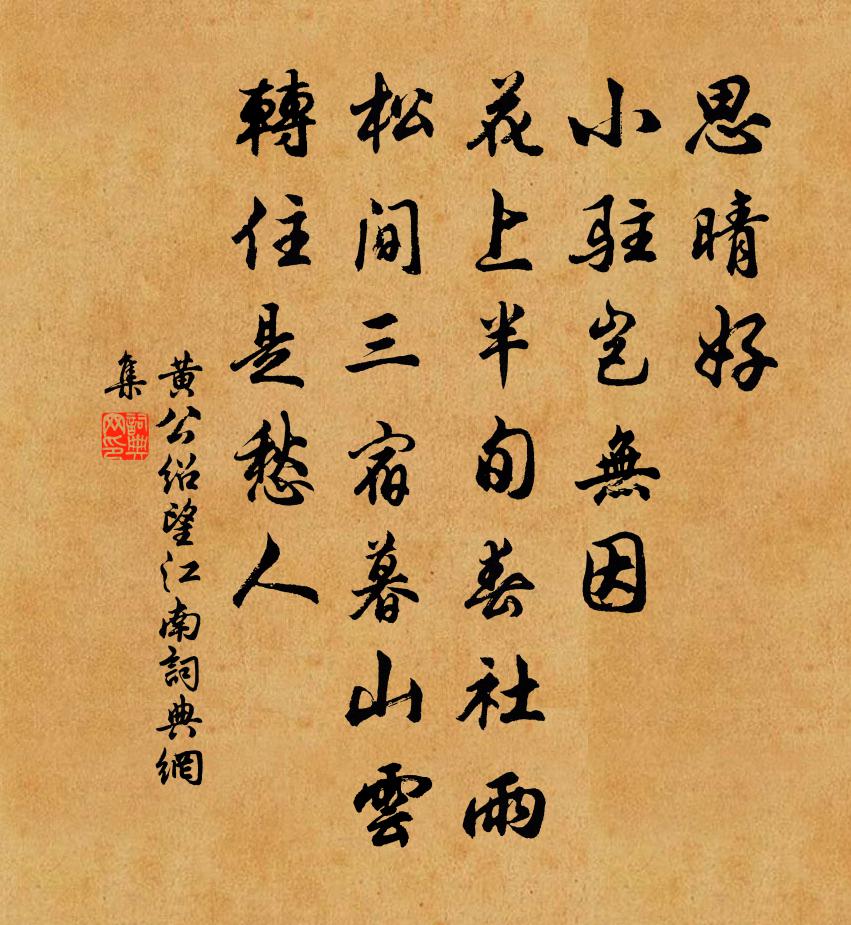 思晴好
小駐豈無因
花上半旬春社雨
松間三宿暮山雲
轉住是愁人
黄公紹望江南詞典網
集
詞典
网印